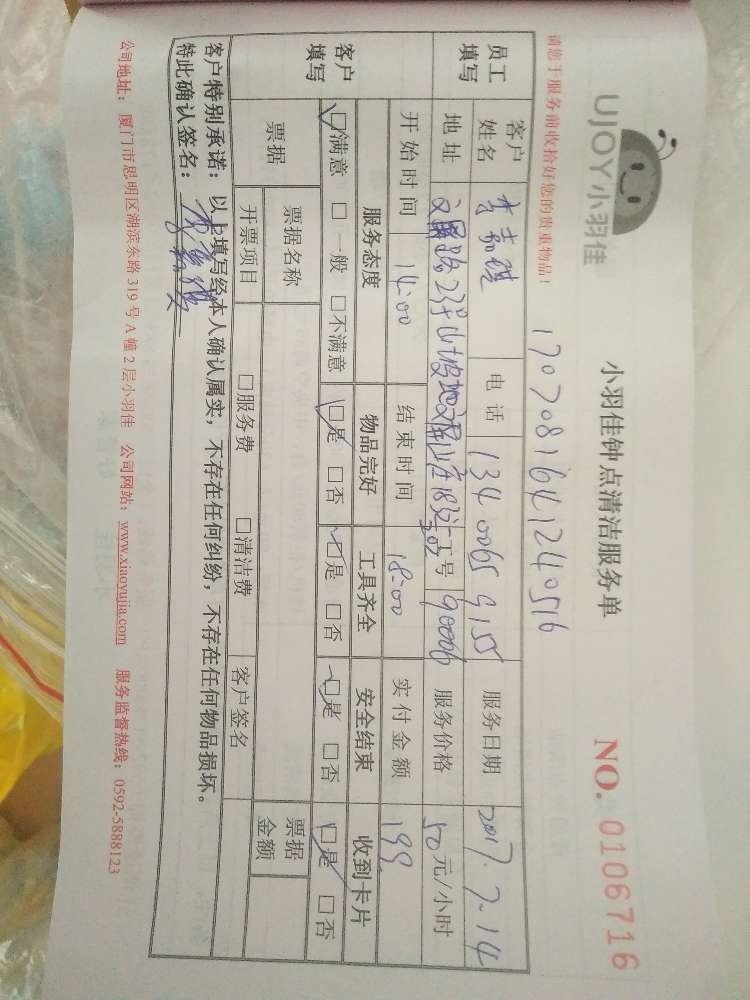 UJOY小羽佳
小羽佳钟点清洁服务单
NO. 0106716
请您于服务前收拾好您的贵重物品！
1707081641240516
员工填写 客户姓名 李 电话 13400659155 服务日期 2017.7.14
地址 工号 90006 服务价格 50元/小时
客户填写 开始时间 14:00 结束时间 18:00 实付金额 199
服务态度 物品完好 工具齐全 安全结束 收到卡片
☑满意 □一般 □不满意 ☑是 □否 ☑是 □否 ☑是 □否 ☑是 □否
票据 票据名称 票据金额
开票项目 □服务费 □清洁费 客户签名
客户特别承诺：以上填写经本人确认属实，不存在任何纠纷，不存在任何物品损坏。
特此确认签名：
公司地址：厦门市思明区湖滨东路319号A幢2层小羽佳 公司网站：www.xiaoyujia.com 服务监督热线：0592-5888123